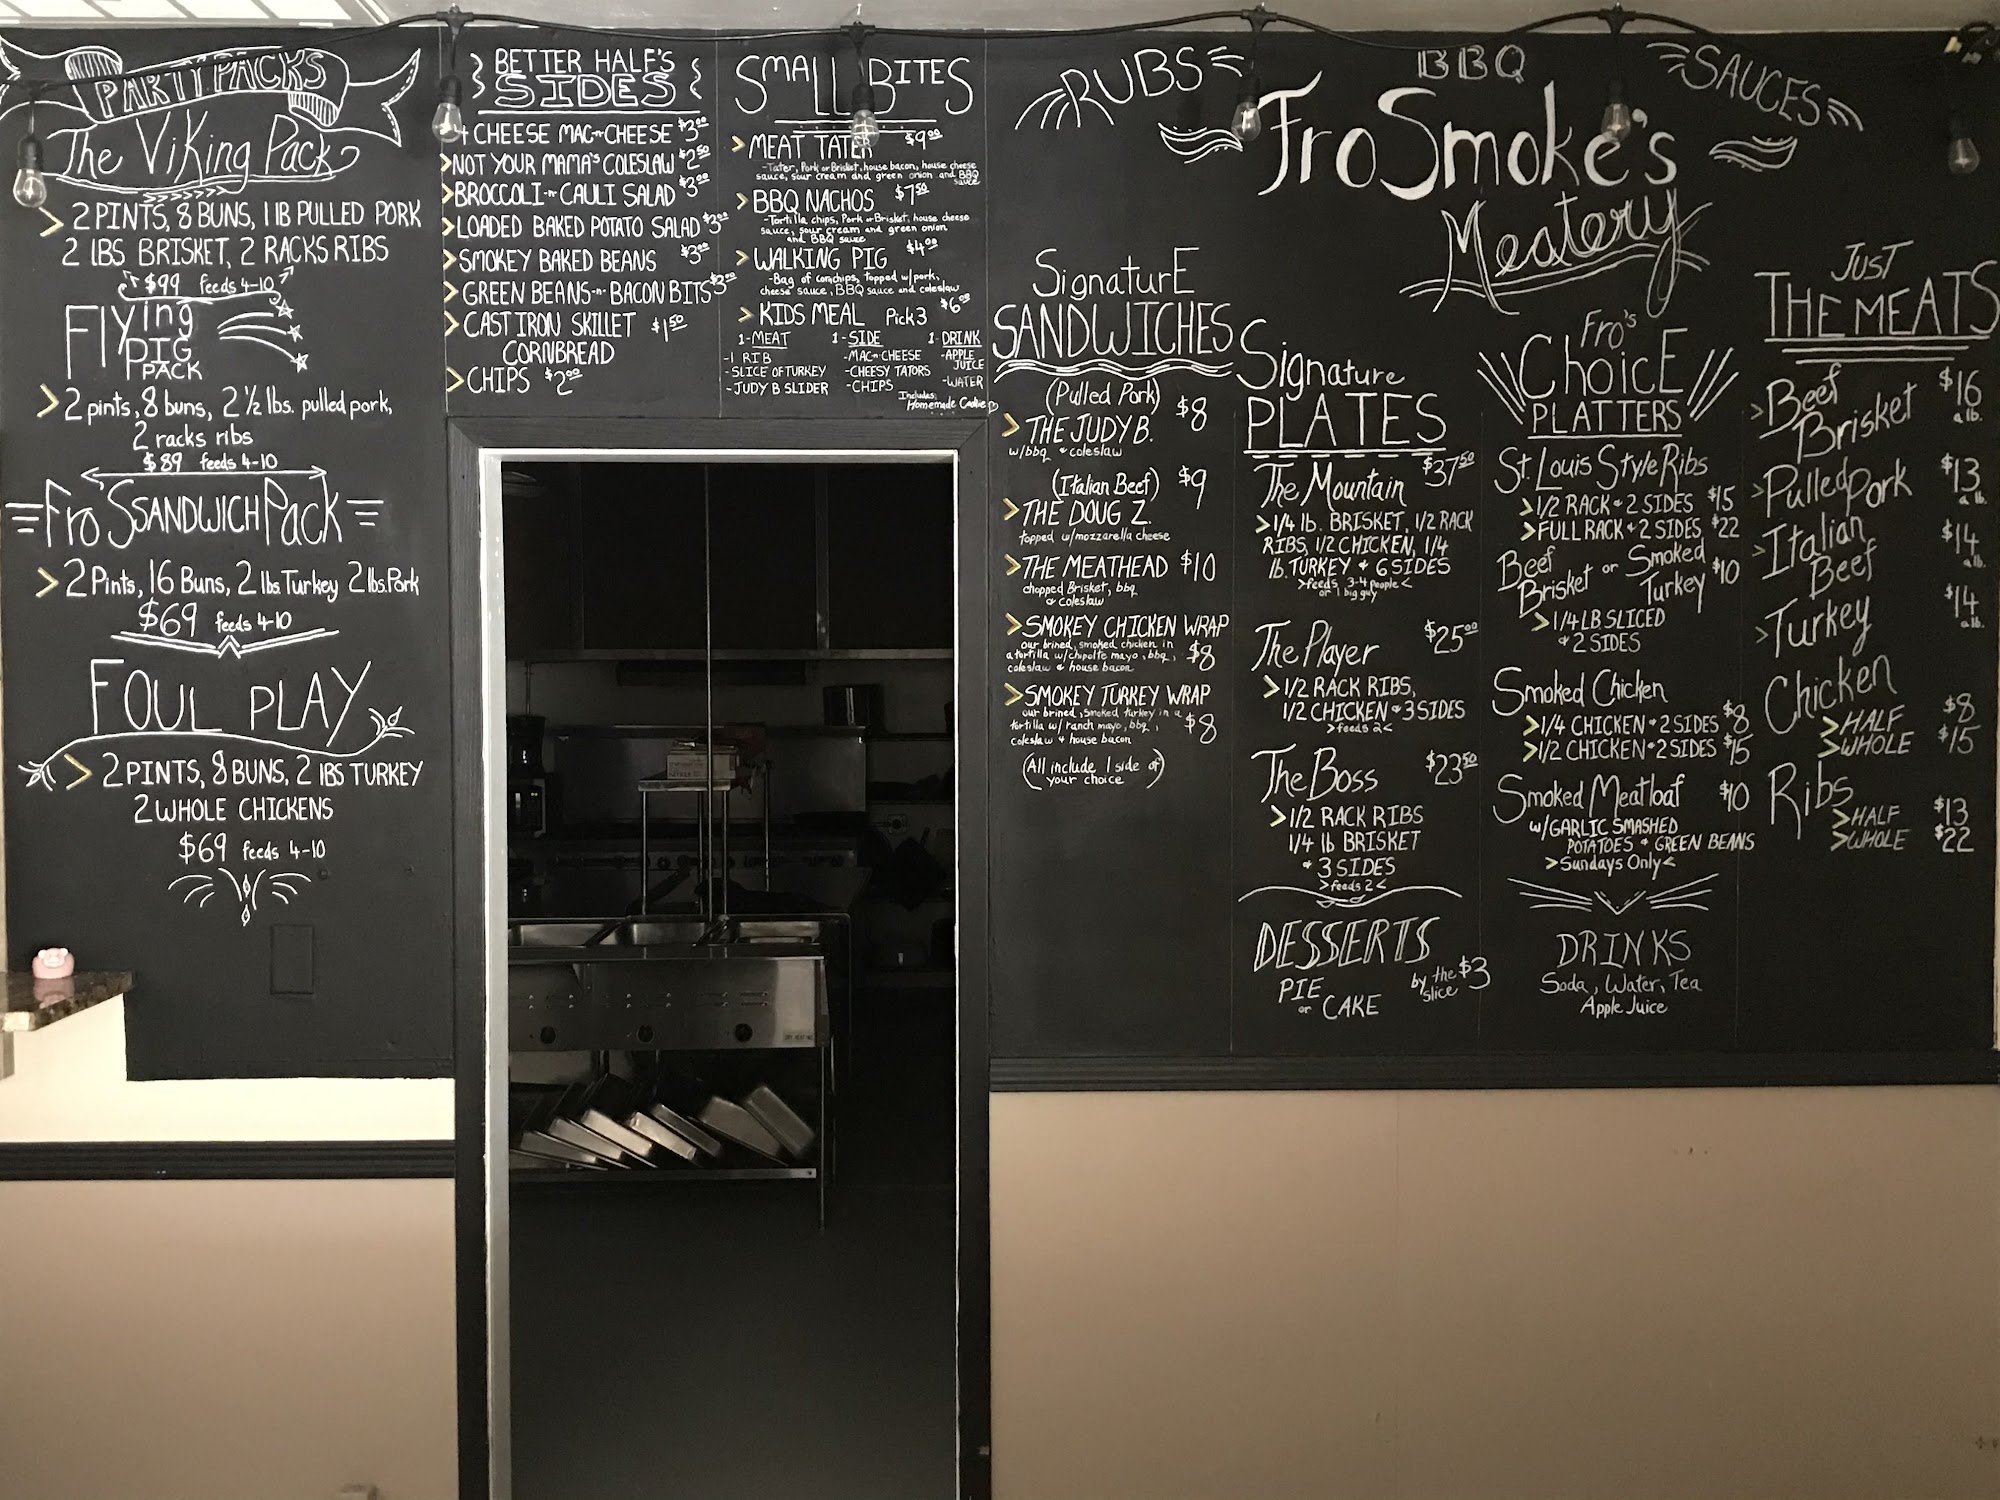 PARTY PACKS
The Viking Pack
> 2 PINTS, 8 BUNS, 1 lB PULLED PORK
2 lBS BRISKET, 2 RACKS RIBS
$99 feeds 4-10
Flying
PIG
PACK
> 2 pints, 8 buns, 2 ½ lbs. pulled pork,
2 racks ribs
$89 feeds 4-10
Fro'S SANDWICH Pack
> 2 Pints, 16 Buns, 2 lbs. Turkey 2 lbs. Pork
$69 feeds 4-10
FOUL PLAY
> 2 PINTS, 8 BUNS, 2 lBS TURKEY
2 WHOLE CHICKENS
$69 feeds 4-10
BETTER HALF'S
SIDES
4 CHEESE MAC-n-CHEESE $3.00
> NOT YOUR MAMA'S COLESLAW $2.50
> BROCCOLI-n-CAULI SALAD $3.00
> LOADED BAKED POTATO SALAD $3.00
> SMOKEY BAKED BEANS $3.00
> GREEN BEANS-n-BACON BITS $3.00
> CAST IRON SKILLET $1.50
CORNBREAD
> CHIPS $2.00
SMALL BITES
> MEAT TATER $9.00
-Tater, Pork or Brisket, house bacon, house cheese
sauce, sour cream and green onion and BBQ
sauce
> BBQ NACHOS $7.50
-Tortilla chips, Pork or Brisket, house cheese
sauce, sour cream and green onion
and BBQ sauce
> WALKING PIG $4.00
-Bag of cornchips, topped w/pork,
cheese sauce, BBQ sauce and coleslaw
> KIDS MEAL Pick 3 $6.00
1-MEAT 1-SIDE 1-DRINK
-1 RIB -MAC-n-CHEESE -APPLE
JUICE
-SLICE OF TURKEY -CHEESY TATORS
-JUDY B SLIDER -CHIPS -WATER
Includes:
Homemade Cookie
RUBS
BBQ
SAUCES
FroSmoke's
Meatery
Signature
SANDWICHES
(Pulled Pork) $8
> THE JUDY B.
w/bbq & coleslaw
(Italian Beef) $9
> THE DOUG Z.
topped w/mozzarella cheese
> THE MEATHEAD $10
chopped Brisket, bbq
& coleslaw
> SMOKEY CHICKEN WRAP
our brined, smoked chicken in
a tortilla w/chipotle mayo, bbq, $8
coleslaw & house bacon
> SMOKEY TURKEY WRAP
our brined, smoked turkey in a
tortilla w/ ranch mayo, bbq, $8
coleslaw & house bacon
(All include 1 side of
your choice)
Signature
PLATES
The Mountain $37.50
> 1/4 lb. BRISKET, 1/2 RACK
RIBS, 1/2 CHICKEN, 1/4
lb. TURKEY & 6 SIDES
>feeds 3-4 people<
or 1 big guy
The Player $25.00
> 1/2 RACK RIBS,
1/2 CHICKEN & 3 SIDES
>feeds 2<
The Boss $23.50
> 1/2 RACK RIBS
1/4 lb BRISKET
& 3 SIDES
>feeds 2<
DESSERTS
PIE by the $3
or CAKE slice
Fro's
Choice
PLATTERS
St. Louis Style Ribs
> 1/2 RACK & 2 SIDES $15
> FULL RACK & 2 SIDES $22
Beef Brisket or Smoked Turkey $10
> 1/4 LB SLICED
& 2 SIDES
Smoked Chicken
> 1/4 CHICKEN & 2 SIDES $8
> 1/2 CHICKEN & 2 SIDES $15
Smoked Meatloaf $10
w/GARLIC SMASHED
POTATOES & GREEN BEANS
>Sundays Only<
DRINKS
Soda, Water, Tea
Apple Juice
JUST
THE MEATS
> Beef Brisket $16 a lb.
> Pulled Pork $13 a lb.
> Italian Beef $14 a lb.
> Turkey $14 a lb.
Chicken
> HALF $8
> WHOLE $15
Ribs
> HALF $13
> WHOLE $22